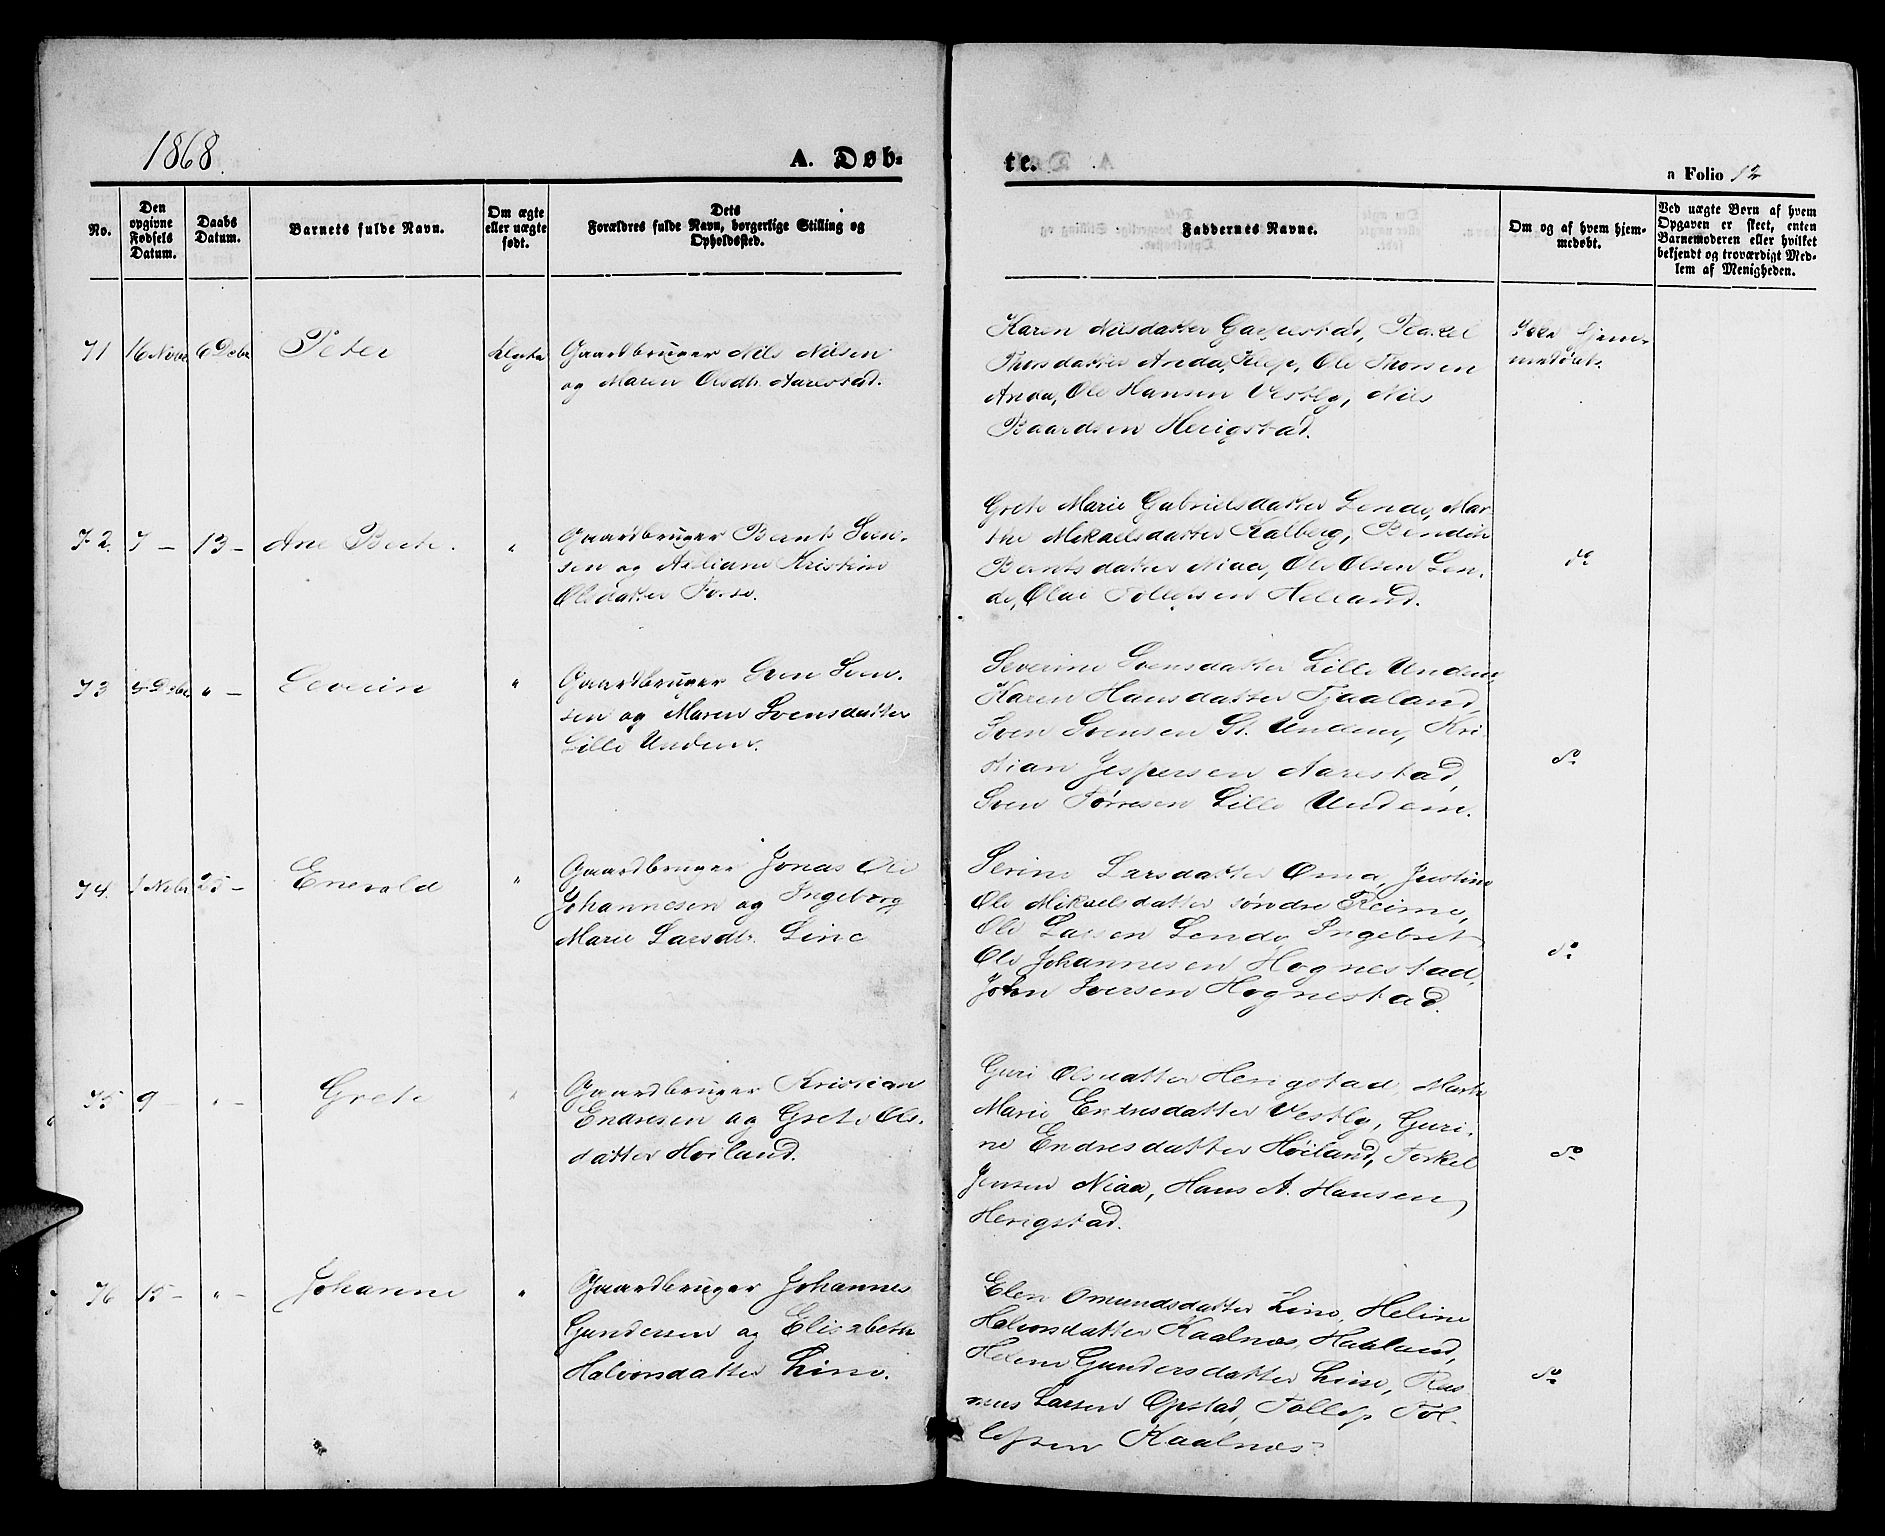 1868.
A. Døb-
te.
a Folio 12
No.
Den
opgivne
Fødsels
Datum.
Daabs
Datum.
Barnets fulde Navn.
Om ægte
eller uægte
født.
Dets
Forældres fulde Navn, borgerlige Stilling og
Opholdssted.
Faddernes Navne.
Om og af hvem hjem-
medøbt.
Ved uægte Børn af hvem
Opgaven er skeet, enten
Barnemoderen eller hvilket
bekjendt og troværdigt Med-
lem af Menigheden.
71
16 Novbr
6 Decbr
Peter
Gaardbruger Nils Nilsen
og Maren Olsdtr. Aarestad.
Karen Nilsdatter
Thorsdatter Anda, Klep, Ole Thorsen
Anda, Ole Hansen Vestly, Nils
Baardsen Herigstad.
Ikke hjem-
medøbt.
72.
7 -
13 -
Ane Berte.
"
Gaardbruger Bernt Sven-
sen og Kristine
Olsdatter
Grete Marie Gabrielsdatter Lende, Mar-
the Mikaelsdatter Kalberg, Bendine
Berntsdatter Niaa, Ole Olsen Len-
de, Olai Tollefsen Helland.
do
73
Decbr
" -
Severin
"
Gaardbruger Sven Sven-
sen og Maren Svensdatter
Lille Undem.
Severine Svensdatter Lille Undem,
Karen Hansdatter Tjaaland,
Sven Svensen St. Undem, Kri-
stian Jespersen Aarestad,
Sven Tørresen Lille Undem.
do
74.
1 Novbr
25 -
Enevald
"
Gaardbruger Jonas Ole
Johannesen og Ingeborg
Marie Larsdtr. Line
Serine Larsdatter Oma, Justine
Ole Mikaelsdatter søndre Reime,
Ole Larsen Lende, Ingebret
Ole Johannesen Hognestad,
John Iversen Hognestad.
do
75
9 -
" -
Grete
"
Gaardbruger Kristian
Endresen og Grete Ols-
datter Høiland.
Guri Olsdatter Herigstad, Marte
Marie Endresdatter Vestly, Guri-
ne Endresdatter Høiland, Torkel
Jensen Niaa, Hans A. Hansen
Herigstad.
do
76
15 -
" -
Johanne
"
Gaardbruger Johannes
Gundersen og Elisabeth
Halvorsdatter Line.
Elen Omundsdatter Line, Heline
Halvorsdatter Kaalnæs, Haaland,
Helene Gundersdatter Line, Ras-
mus Larsen Opstad, Tollef Tol-
lefsen Kaalnæs.
do